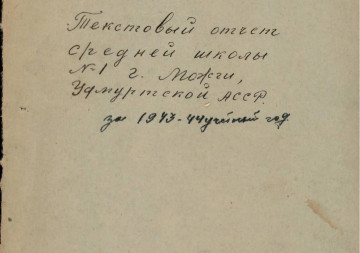 Текстовый отчет
средней школы
№1 г. Можги,
Удмуртской АССР.
за 1943-44 учебный год.